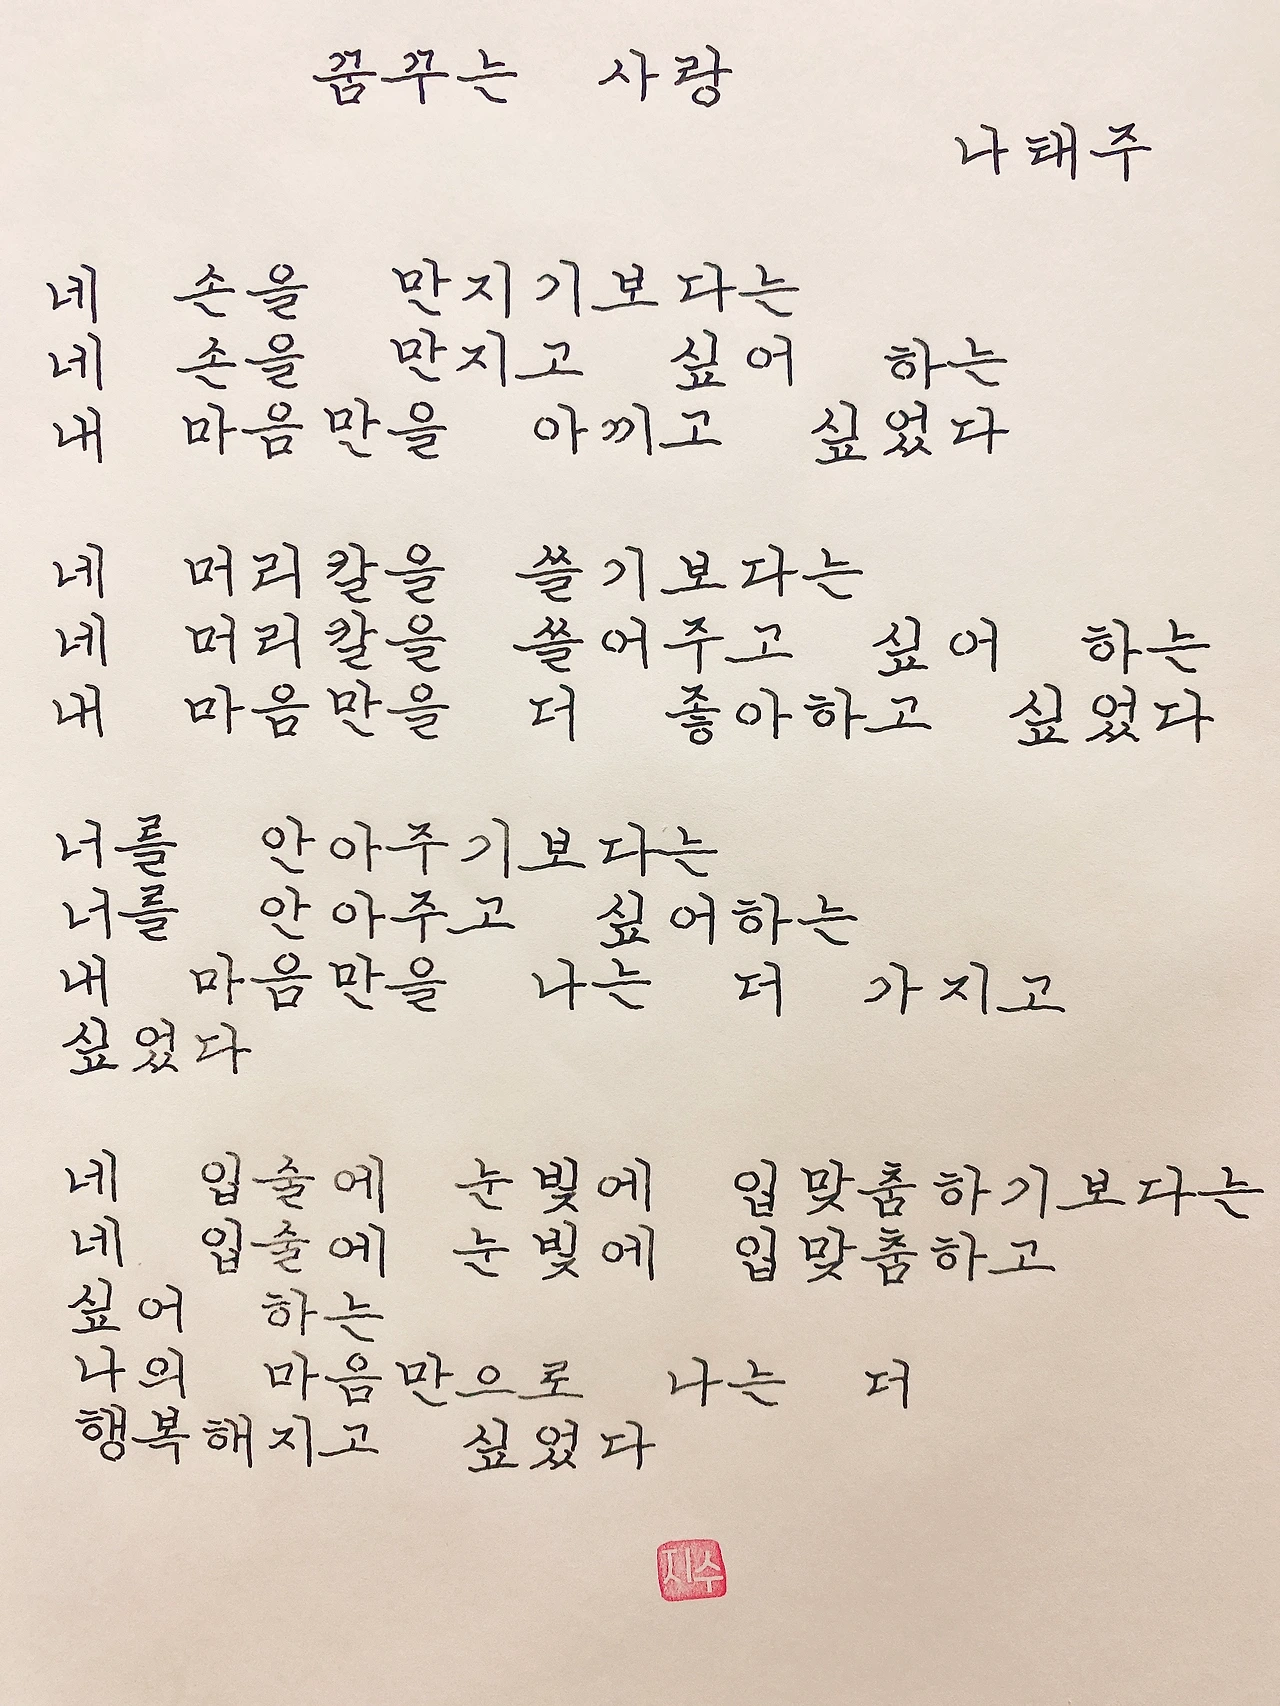 꿈꾸는 사랑
나태주
네 손을 만지기보다는
네 손을 만지고 싶어 하는
내 마음만을 아끼고 싶었다
네 머리칼을 쓸기보다는
네 머리칼을 쓸어주고 싶어 하는
내 마음만을 더 좋아하고 싶었다
너를 안아주기보다는
너를 안아주고 싶어하는
내 마음만을 나는 더 가지고
싶었다
네 입술에 눈빛에 입맞춤하기보다는
네 입술에 눈빛에 입맞춤하고
싶어 하는
나의 마음만으로 나는 더
행복해지고 싶었다
지수